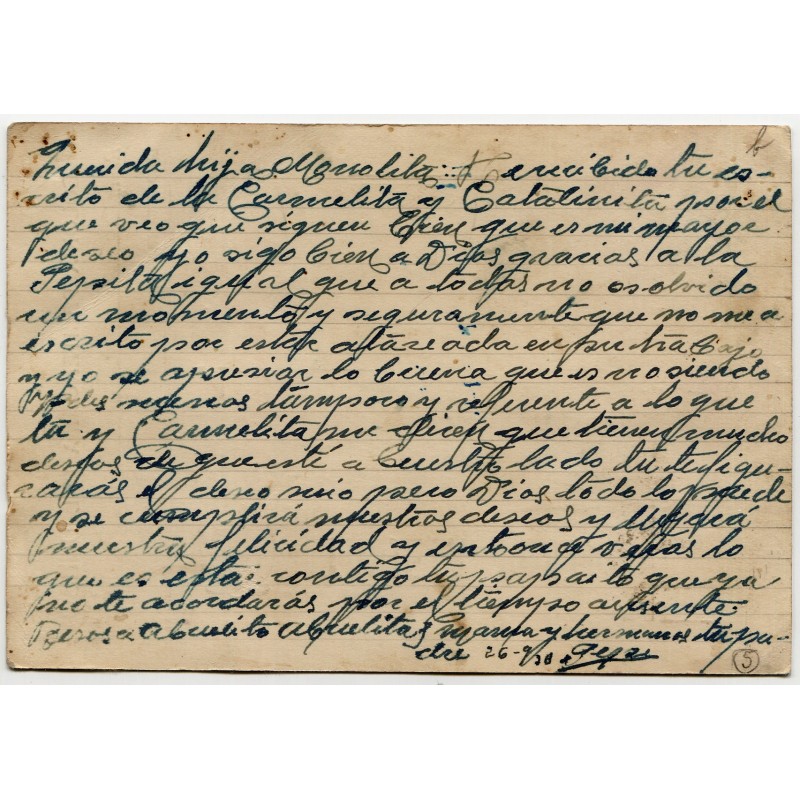 b
Querida hija Manolita: He recibido tu es-
crito de la Carmelita y Catalinita por el
que veo que siguen bien que es mi mayor
deseo yo sigo bien a Dios gracias a la
Pepita igual que a todas no os olvido
un momento y seguramente que no me a
escrito por estar atareada en su trabajo
y yo se apreciar lo buena que es no siendo
menos tampoco y referente a lo que
tu y Carmelita me dicen que tienen mucho
deseos de que esté a buestro lado tu te figu-
rarás el deseo mio pero Dios todo lo puede
y se cumplirá nuestros deseos y llegará
nuestra felicidad y entonces verás lo
que es estar contigo tu papaito que ya
no te acordarás por el tiempo ausente
Besos a Abuelito Abuelitas mama y hermanos tu pa-
dre 26-9/38 Pepe
5